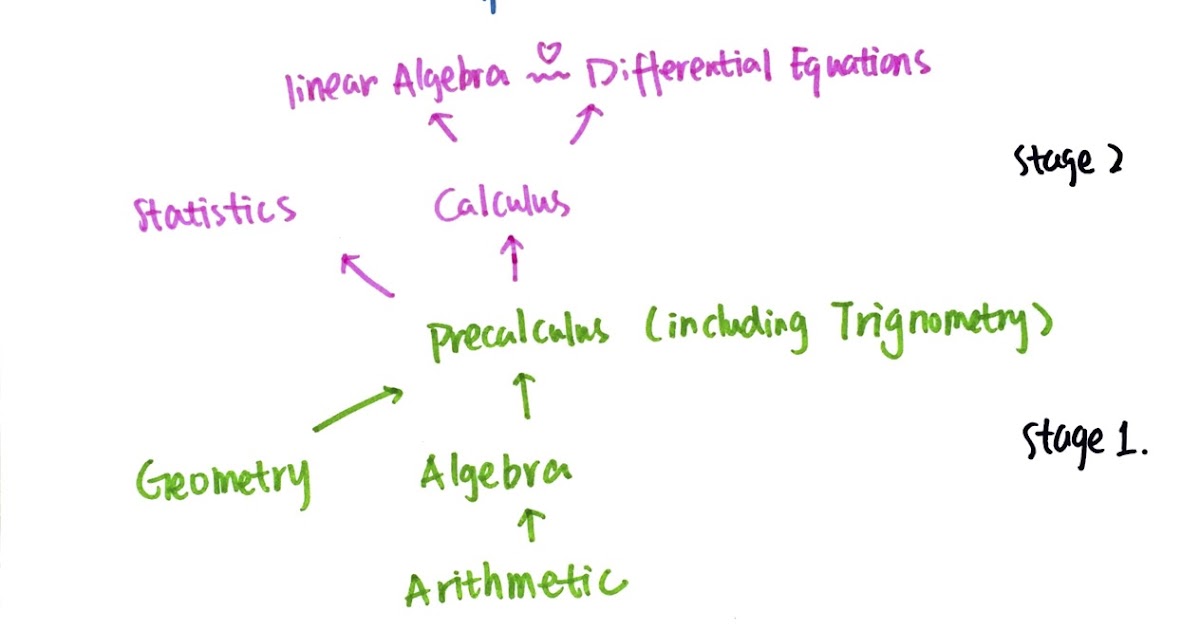 linear Algebra Differential Equations
Stage 2
Statistics Calculus
Precalculus (including Trignometry)
Stage 1.
Geometry Algebra
Arithmetic